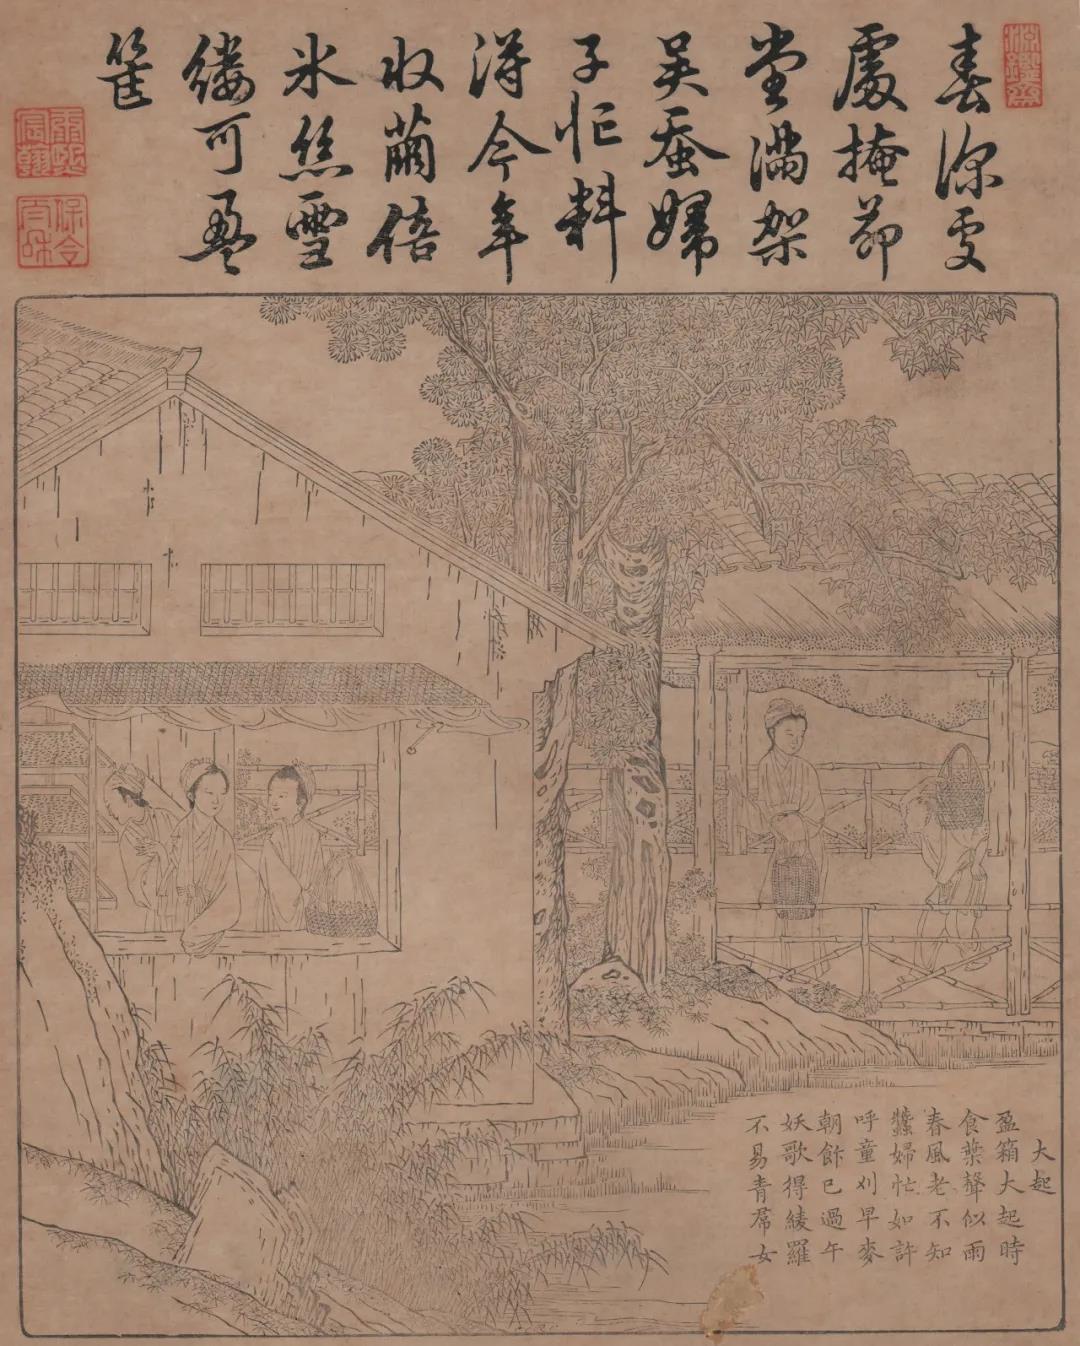 淵鑒齋
春深处
處掩茆
堂滿架
吳蚕婦
子忙料
得今年
收繭倍
氷絲雪
縷可盈
筐
康熙宸翰
保合太和
大起
盈箱大起時
食葉聲似雨
春風老不知
蠶婦忙如許
呼童刈早麥
朝飰已過午
妖歌得綾羅
不易青帬女